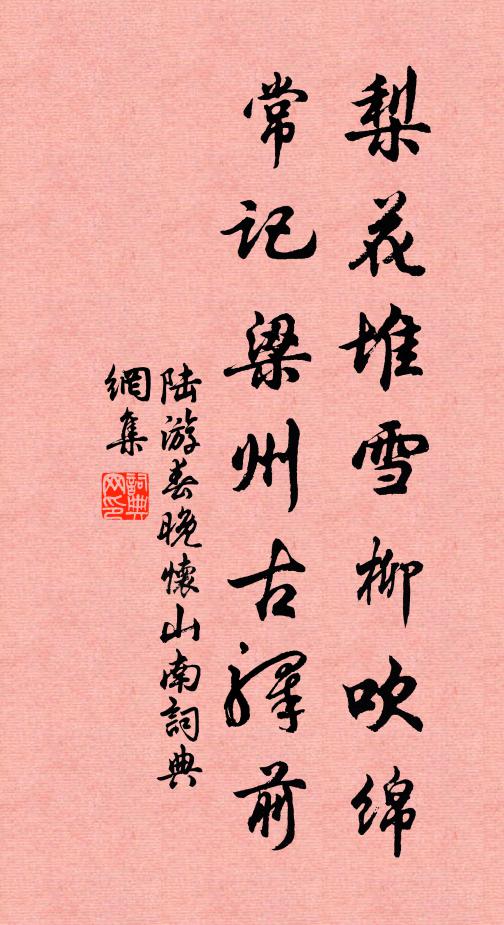 梨花堆雪柳吹绵
常记梁州古驿前
陆游春晚懷山南詞典
網集
詞典
网印